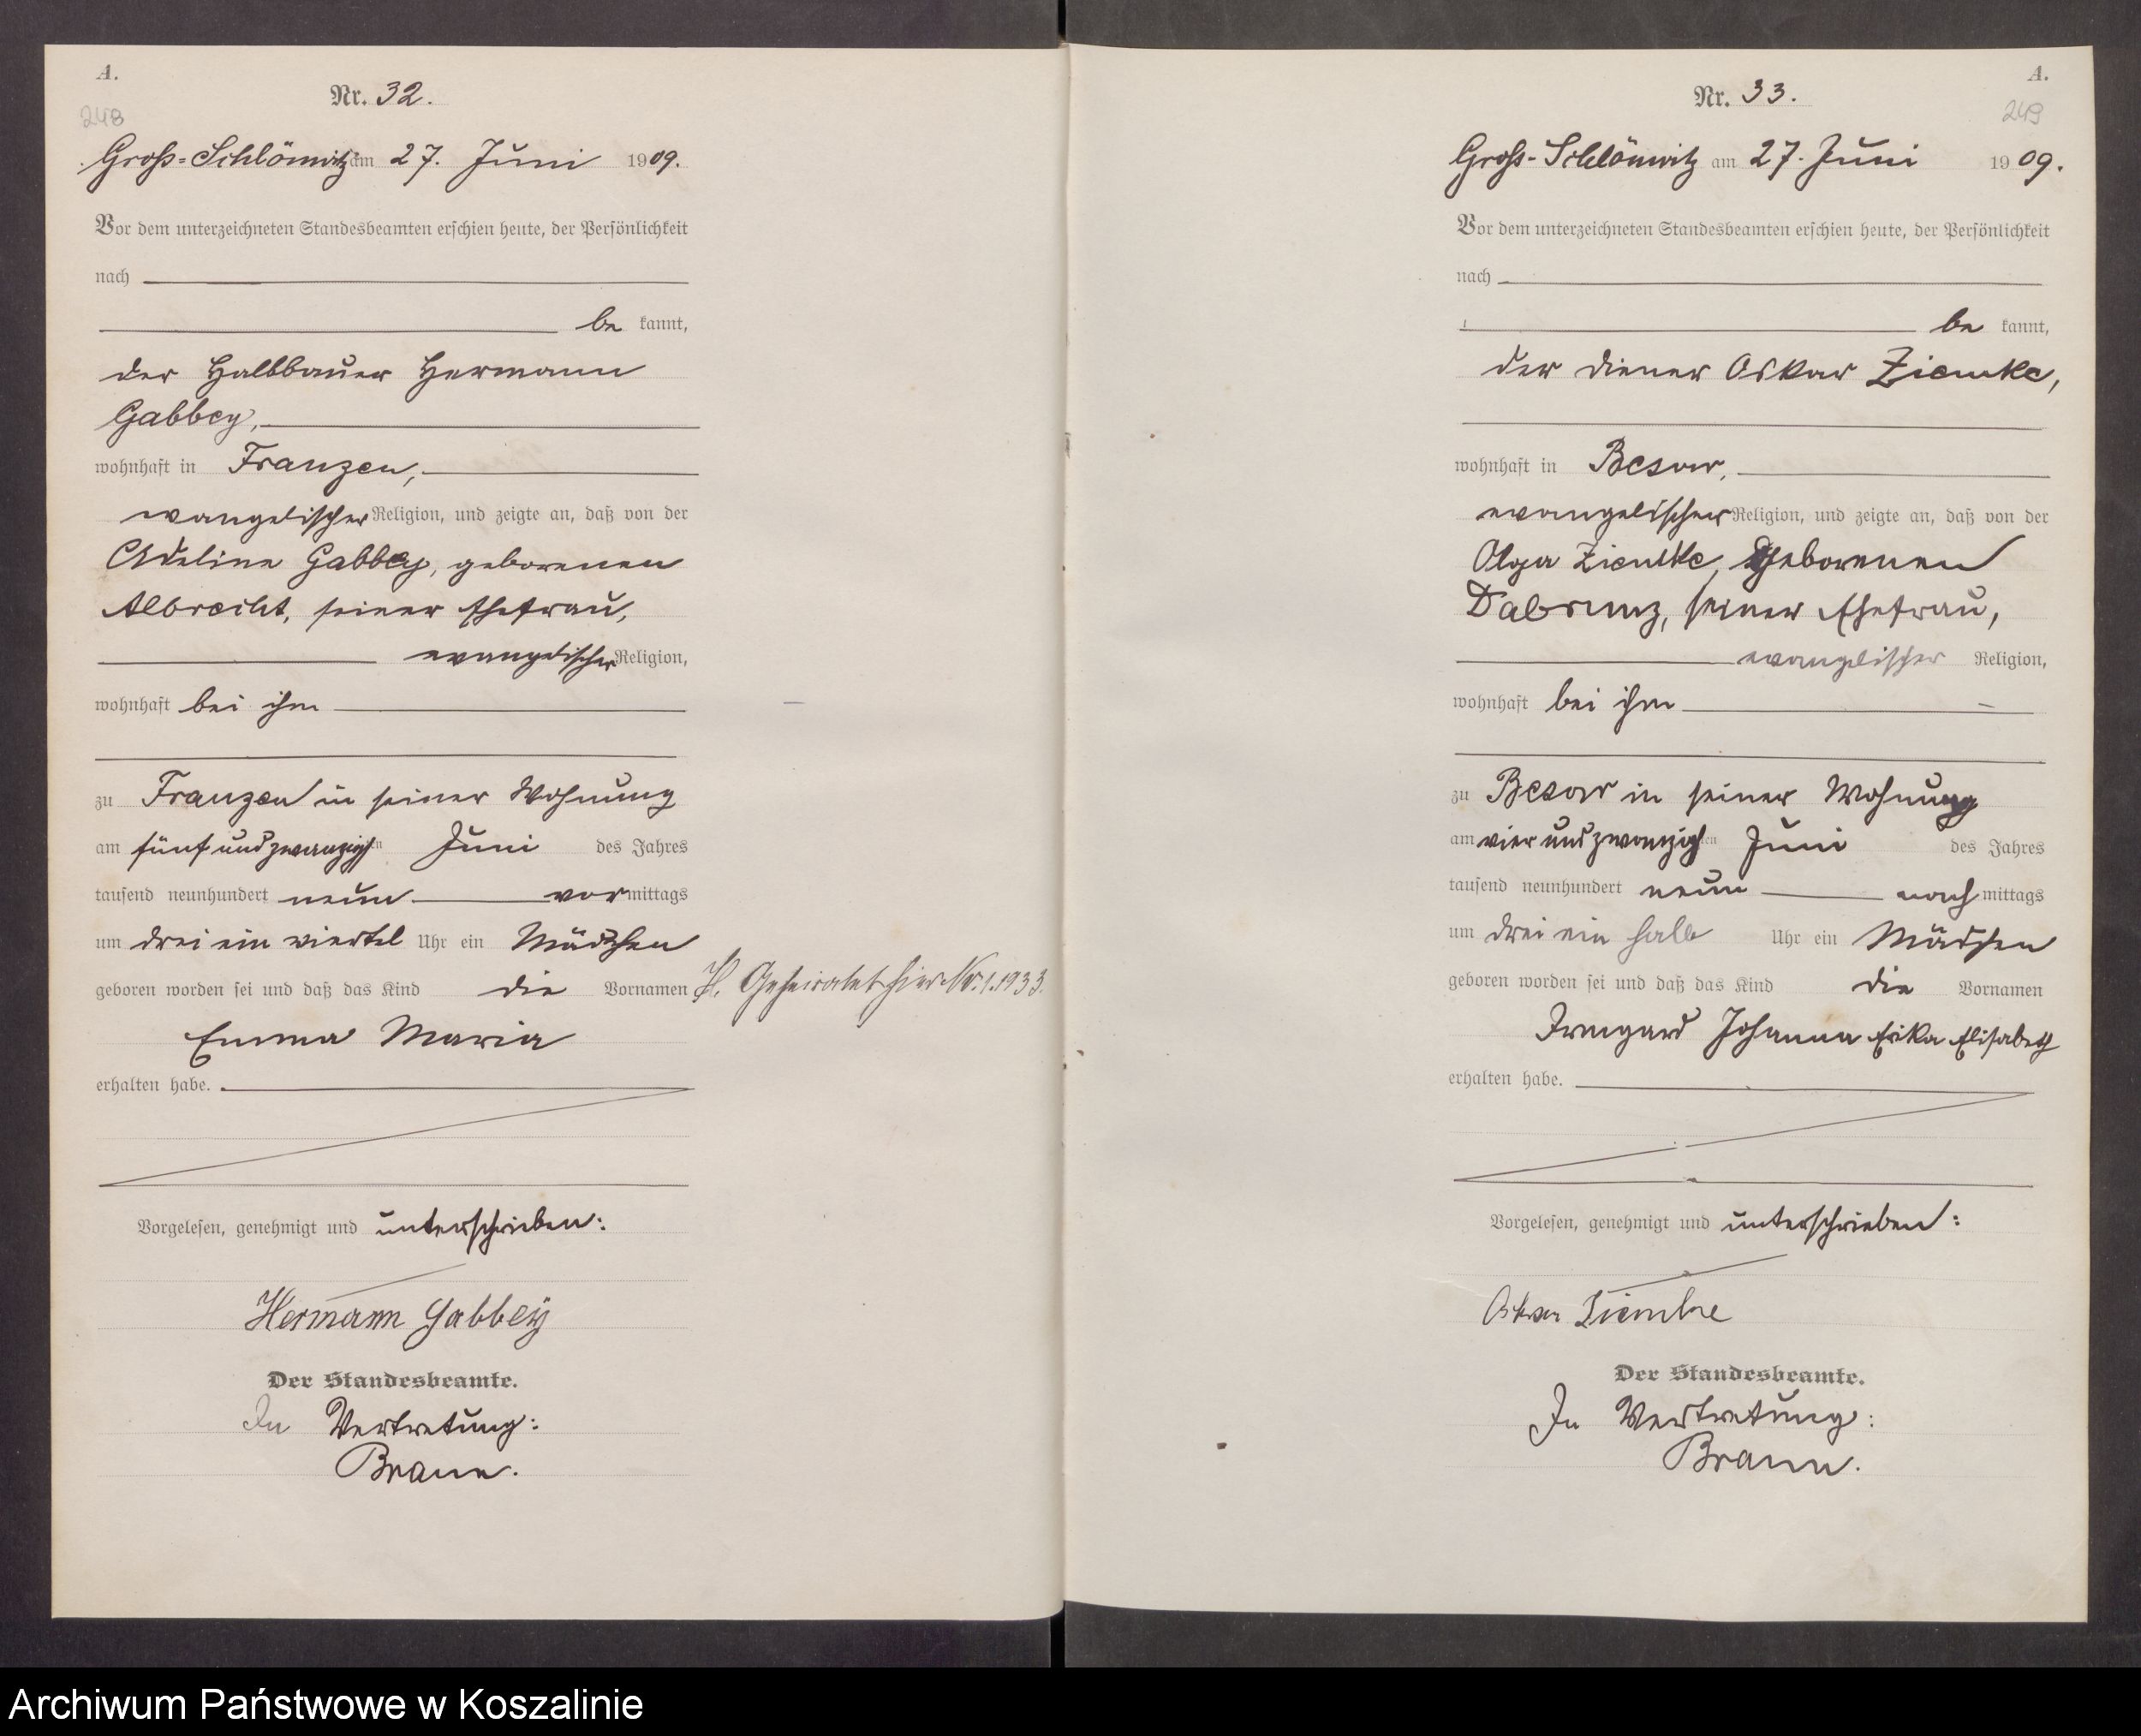 A.
248
Nr. 32.
Groß-Schlönwitz am 27. Juni 1909.
Vor dem unterzeichneten Standesbeamten erschien heute, der Persönlichkeit
nach
be kannt,
der Halbbauer Hermann
Gabbey,
wohnhaft in Franzen,
evangelischer Religion, und zeigte an, daß von der
Adeline Gabbey, geborenen
Albrecht, seiner Ehefrau,
evangelischer Religion,
wohnhaft bei ihm
zu Franzen in seiner Wohnung
am fünf und zwanzigsten Juni des Jahres
tausend neunhundert neun vor mittags
um drei ein viertel Uhr ein Mädchen
geboren worden sei und daß das Kind die Vornamen
Emma Maria
erhalten habe.
Vorgelesen, genehmigt und unterschrieben:
Hermann Gabbey
Der Standesbeamte.
In Vertretung:
Braun.
H. Geheiratet hier Nr. 1.1933.
A.
249
Nr. 33.
Groß-Schlönwitz am 27. Juni 1909.
Vor dem unterzeichneten Standesbeamten erschien heute, der Persönlichkeit
nach
be kannt,
der Diener Oskar Ziemke,
wohnhaft in Besow,
evangelischer Religion, und zeigte an, daß von der
Olga Ziemke, geborenen
Dabrunz, seiner Ehefrau,
evangelischer Religion,
wohnhaft bei ihm
zu Besow in seiner Wohnung
am vier und zwanzigsten Juni des Jahres
tausend neunhundert neun nach mittags
um drei ein halb Uhr ein Mädchen
geboren worden sei und daß das Kind die Vornamen
Irmgard Johanna Erika Elisabeth
erhalten habe.
Vorgelesen, genehmigt und unterschrieben:
Oskar Ziemke
Der Standesbeamte.
In Vertretung:
Braun.
Archiwum Państwowe w Koszalinie